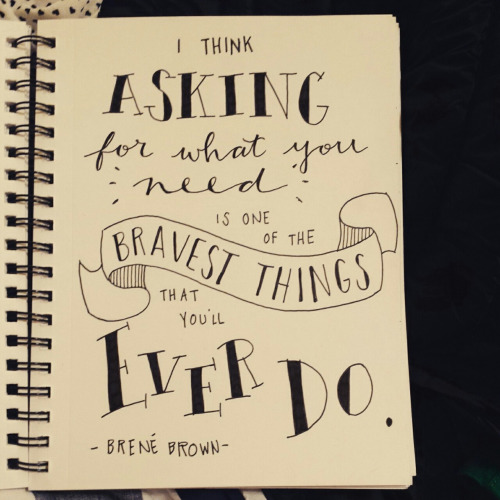 I THINK
ASKING
for what you
need
IS ONE
OF THE
BRAVEST THINGS
THAT
YOU'LL
EVER DO.
- BRENÉ BROWN-